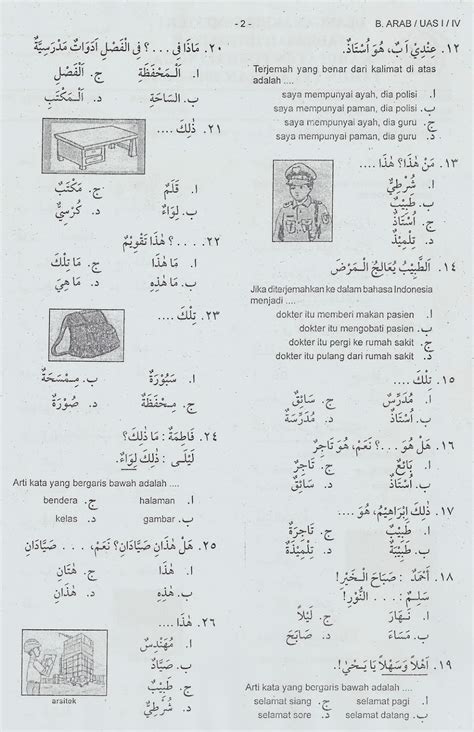 - 2 -
B. ARAB / UAS I / IV
١٢. عِنْدِيْ اَبٌ، هُوَ اُسْتَاذٌ.
Terjemah yang benar dari kalimat di atas
adalah ....
ا. saya mempunyai ayah, dia polisi
ب. saya mempunyai paman, dia polisi
ج. saya mempunyai ayah, dia guru
د. saya mempunyai paman, dia guru
١٣. مَنْ هٰذَا؟ هٰذَا ....
ا. شُرْطِيٌّ
ب. طَبِيْبٌ
ج. اُسْتَاذٌ
د. تِلْمِيْذٌ
١٤. اَلطَّبِيْبُ يُعَالِجُ الْمَرْضَ
Jika diterjemahkan ke dalam bahasa Indonesia
menjadi ....
ا. dokter itu memberi makan pasien
ب. dokter itu mengobati pasien
ج. dokter itu pergi ke rumah sakit
د. dokter itu pulang dari rumah sakit
١٥. تِلْكَ ....
ا. مُدَرِّسٌ ج. سَائِقٌ
ب. اُسْتَاذٌ د. مُدَرِّسَةٌ
١٦. هَلْ هُوَ ...؟ نَعَمْ، هُوَ تَاجِرٌ
ا. بَائِعٌ ج. تَاجِرٌ
ب. اُسْتَاذٌ د. سَائِقٌ
١٧. ذٰلِكَ اِبْرَاهِيْمُ، هُوَ ....
ا. طَبِيْبٌ ج. تَاجِرَةٌ
ب. طَبِيْبَةٌ د. تِلْمِيْذَةٌ
١٨. اَحْمَدُ : صَبَاحَ الْخَيْرِ!
سَلِيْمٌ : .... النُّوْرِ!
ا. نَهَارَ ج. لَيْلاً
ب. مَسَاءَ د. صَابَحَ
١٩. اَهْلاً وَسَهْلاً يَا يَحْيٰ!.
Arti kata yang bergaris bawah adalah ....
ا. selamat pagi ج. selamat siang
ب. selamat datang د. selamat sore
٢٠. مَاذَا فِى ...؟ فِى الْفَصْلِ اَدَوَاتٌ مَدْرَسِيَّةٌ
ا. اَلْمَحْفَظَةِ ج. اَلْفَصْلِ
ب. السَّاحَةِ د. اَلْمَكْتَبِ
٢١. ذٰلِكَ ....
ا. قَلَمٌ ج. مَكْتَبٌ
ب. لِوَاءٌ د. كُرْسِيٌّ
٢٢. ....؟ هٰذَا تَقْوِيْمٌ
ا. مَا هٰذَا ج. مَا تِلْكَ
ب. مَا هٰذِهِ د. مَا هِيَ
٢٣. تِلْكَ ....
ا. سَبُوْرَةٌ ب. مِمْسَحَةٌ
ج. مِحْفَظَةٌ د. صُوْرَةٌ
٢٤. فَاطِمَةُ : مَا ذٰلِكَ؟
لَيْلَى : ذٰلِكَ لِوَاءٌ.
Arti kata yang bergaris bawah adalah ....
ا. halaman ج. bendera
ب. gambar د. kelas
٢٥. هَلْ هٰذَانِ صَيَّادَانِ؟ نَعَمْ، .... صَيَّادَانِ
ا. هٰذَا ج. هَتَانِ
ب. هٰذِهِ د. هٰذَانِ
٢٦. هٰذَا ....
ا. مُهَنْدِسٌ
ب. صَيَّادٌ
ج. طَبِيْبٌ
د. شُرْطِيٌّ
arsitek